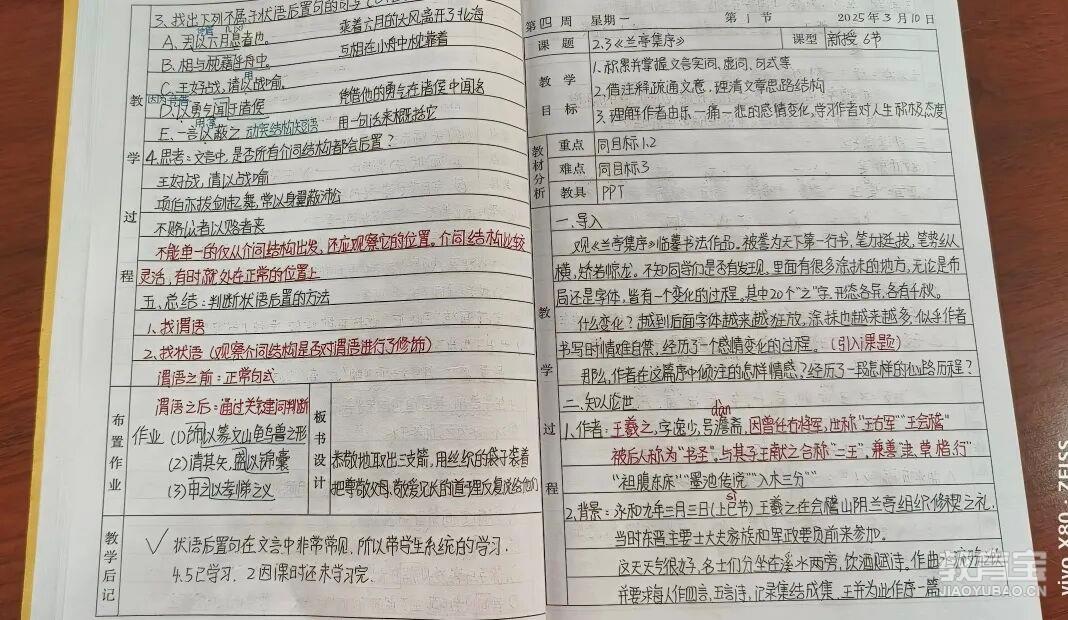 3、找出下列不属于状语后置句的句子
A、去以六月息者也。 乘着六月的大风离开了北海
B、相与枕藉乎舟中。 与相在小舟中枕靠着
C、王好战，请以战喻。
D、以勇气闻于诸侯 凭借他的勇气在诸侯中闻名
E、一言以蔽之 动宾结构短语 用一句话来概括它
4、思考：文言中，是否所有介词结构都会后置？
王好战，请以战喻
项伯亦拔剑起舞，常以身翼蔽沛公
不赂者以赂者丧
不能单一的仅从介词结构出发，还应观察它的位置。介词结构比较
灵活，有时就处在正常的位置上
五、总结：判断状语后置的方法
1、找谓语
2、找状语（观察介词结构是否对谓语进行了修饰）
谓语之前：正常句式
谓语之后：通过关键词判断
教学过程
布置作业
作业 (1)饰以篆文山龟鸟兽之形
(2)请其矢，盛以锦囊
(3)申之以孝悌之义
板书设计
恭敬地取出三支箭，用丝织的袋子装着
把尊敬父母、敬爱兄长的道理反复说给他们
教学后记
√ 状语后置句在文言中非常常见，所以带学生系统的学习.
4.5已学习. 2因课时还未学习完.
第四周 星期一 第1节 2025年3月10日
课题 2.3《兰亭集序》 课型 新授 6节
教学目标
1、积累并掌握文言实词、虚词、句式等
2、借注释疏通文意，理清文章思路结构
3、理解作者由乐—痛—悲的感情变化，学习作者对人生积极态度
教材分析
重点 同目标1.2
难点 同目标3
教具 PPT
教学过程
一、导入
观《兰亭集序》临摹书法作品。被誉为天下第一行书，笔力挺拔，笔势纵
横，矫若惊龙。不知同学们是否有发现，里面有很多涂抹的地方，无论是布
局还是字体，皆有一个变化的过程。其中20个“之”字，形态各异，各有千秋。
什么变化？越到后面字体越来越狂放，涂抹也越来越多，似乎作者
书写时情难自禁，经历了一个感情变化的过程。（引入课题）
那么，作者在这篇序中倾注的怎样情感？经历了一段怎样的心路历程？
二、知人论世
dàn
1、作者：王羲之，字逸少，号澹斋，因曾任右将军，世称“王右军”“王会稽”
被后人称为“书圣”，与其子王献之合称“二王”，兼善隶、草、楷、行
“袒腹东床”“墨池传说”“入木三分”
sì
2、背景：永和九年三月三日(上巳节) 王羲之在会稽山阴兰亭组织修禊之礼，
当时东晋主要士大夫家族和军政要员前来参加。
这天天气很好，名士们分坐在溪水两旁，饮酒赋诗。作曲
并要求每人作四言、五言诗，记录集结成集，王并为此作序一篇
教育宝
JIAOYUBAO.CN
vivo X80 · ZEISS